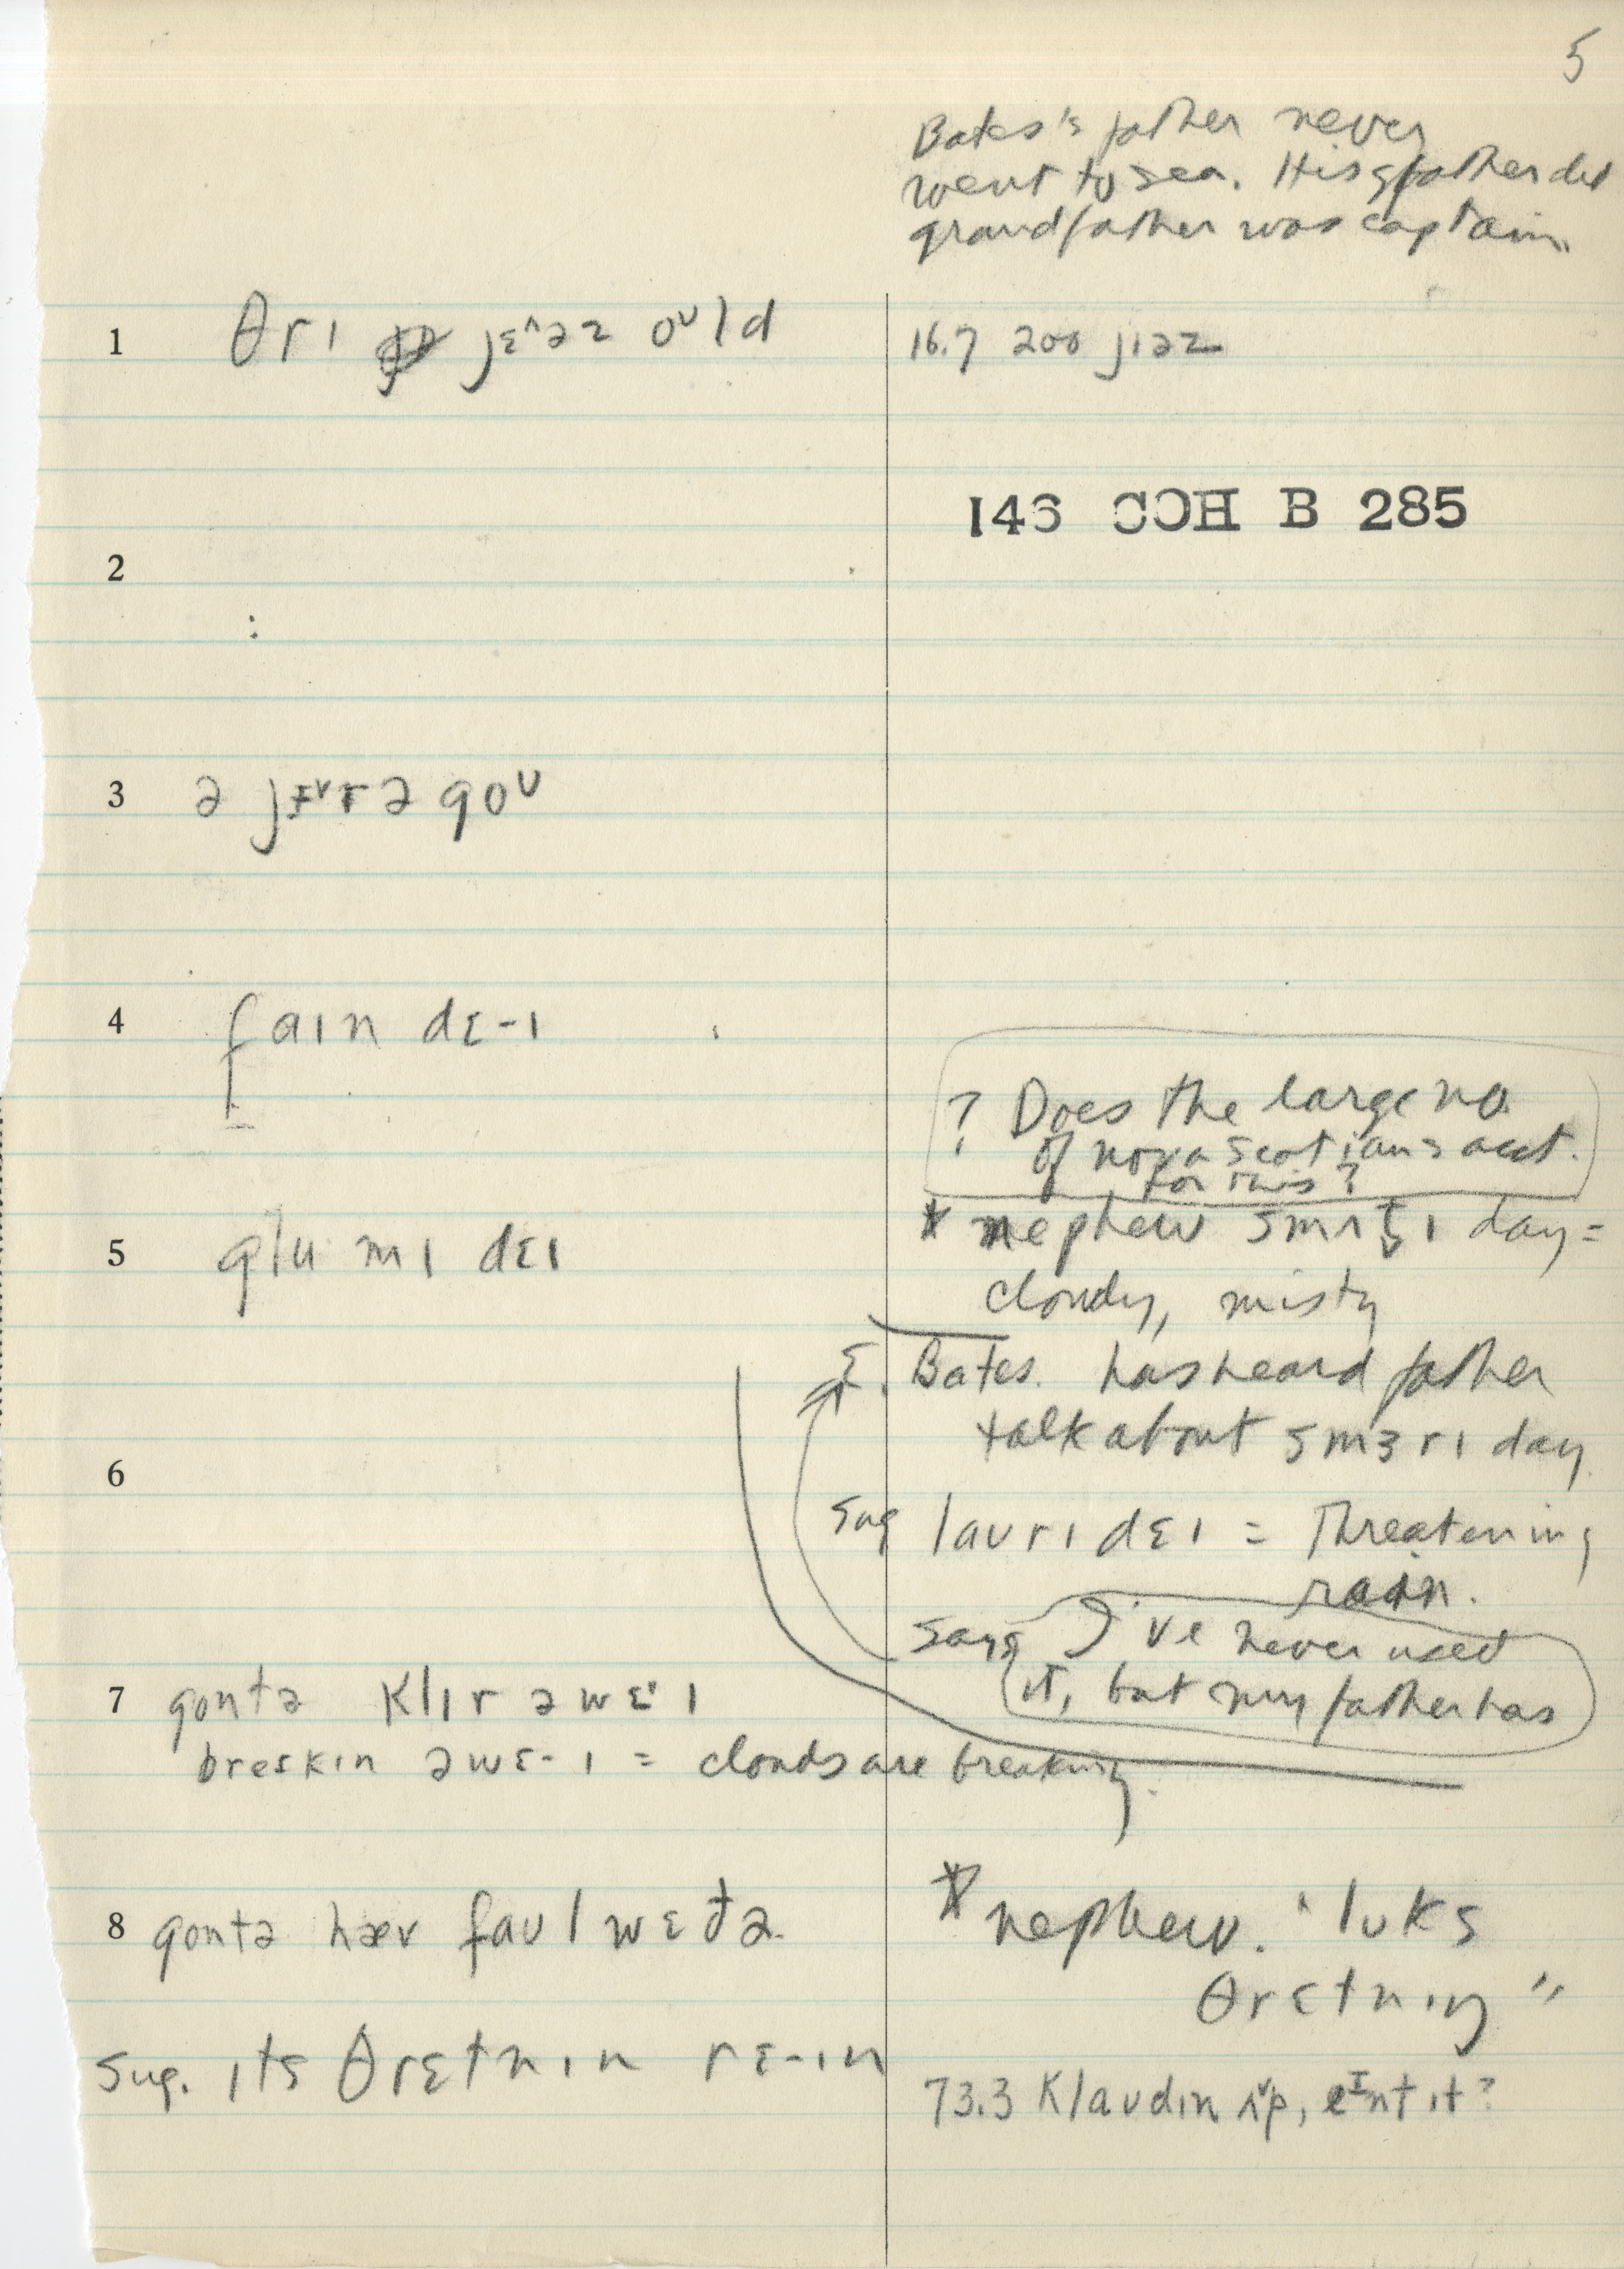 5
Bates's father never
went to sea. His gfather did
grandfather was captain.
1 θrɪ jɛ^əz oᴜld
16.7 200 jɪəz
146 COH B 285
2
:
3 ə jɪ˅r əgoᴜ
4 faɪn dɛ-ɪ
? Does the large no.
of nova scotians acct.
for this?
5 glumɪ dɛɪ
* nephew smʌt̬ɪ day =
cloudy, misty
Σ. Bates. has heard father
talk about smɜrɪ day
6
sug laᴜrɪ dɛɪ = Threatening
rain.
Says I've never used
it, but my father has
7 gontə klɪr əwɛɪ
breɛkɪn əwɛ-ɪ = clouds are breaking.
8 gontə hæv faᴜl wɛðə.
* nephew. "lᴜks
θrɛtnɪŋ"
Sug. ɪts θrɛtnɪn rɛ-ɪn
73.3 klaᴜdɪn ʌ˅p, eᴵnt ɪt?